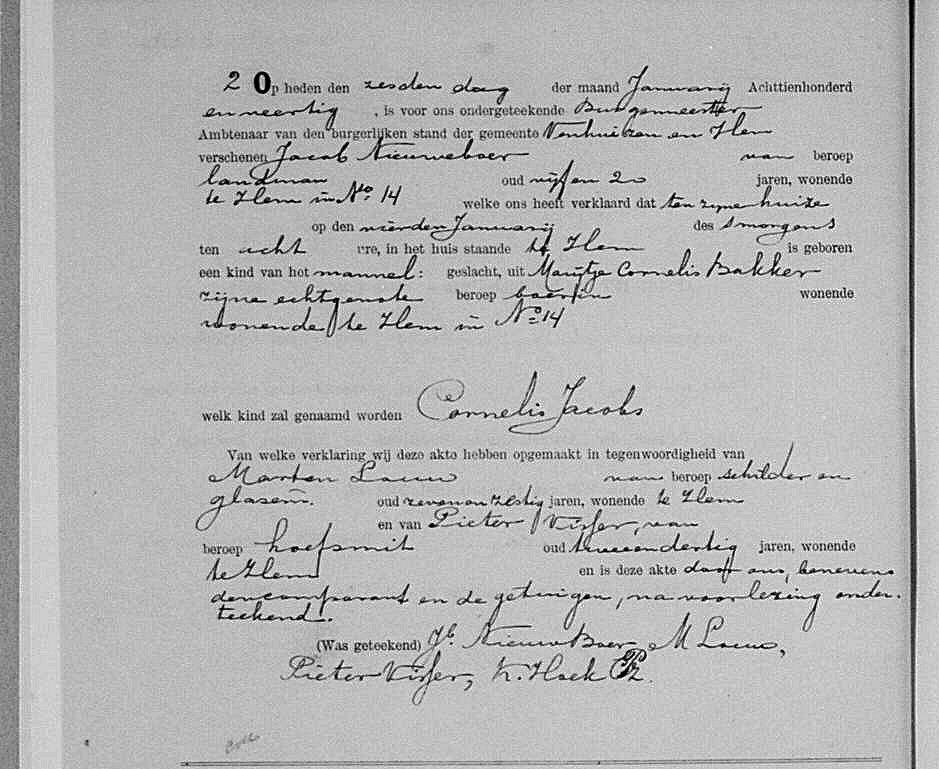 2 Op heden den zesden dag der maand Januarij Achttienhonderd
en veertig, is voor ons ondergeteekende Burgemeester
Ambtenaar van den burgerlijken stand der gemeente Venhuizen en Hem
verschenen Jacob Nieuweboer van beroep
landman oud vijf en 20 jaren, wonende
te Hem in No. 14 welke ons heeft verklaard dat ten zijne huize
op den vierden Januarij des smorgens
ten acht ure, in het huis staande te Hem is geboren
een kind van het mannel: geslacht, uit Marijtje Cornelis Bakker
zijne echtgenote beroep boerin wonende
wonende te Hem in No 14
welk kind zal genaamd worden Cornelis Jacobs
Van welke verklaring wij deze akte hebben opgemaakt in tegenwoordigheid van
Marten Louw van beroep schilder en
glasem. oud zevenenzestig jaren, wonende te Hem
en van Pieter Visser, van
beroep hoefsmit oud tweeendertig jaren, wonende
te Hem en is deze akte door ons, benevens
den comparant en de getuigen, na voorlezing onder.
teekend.
(Was geteekend) Jb. NieuwBoer, M Louw,
Pieter Visser, K. Hoek Pz.